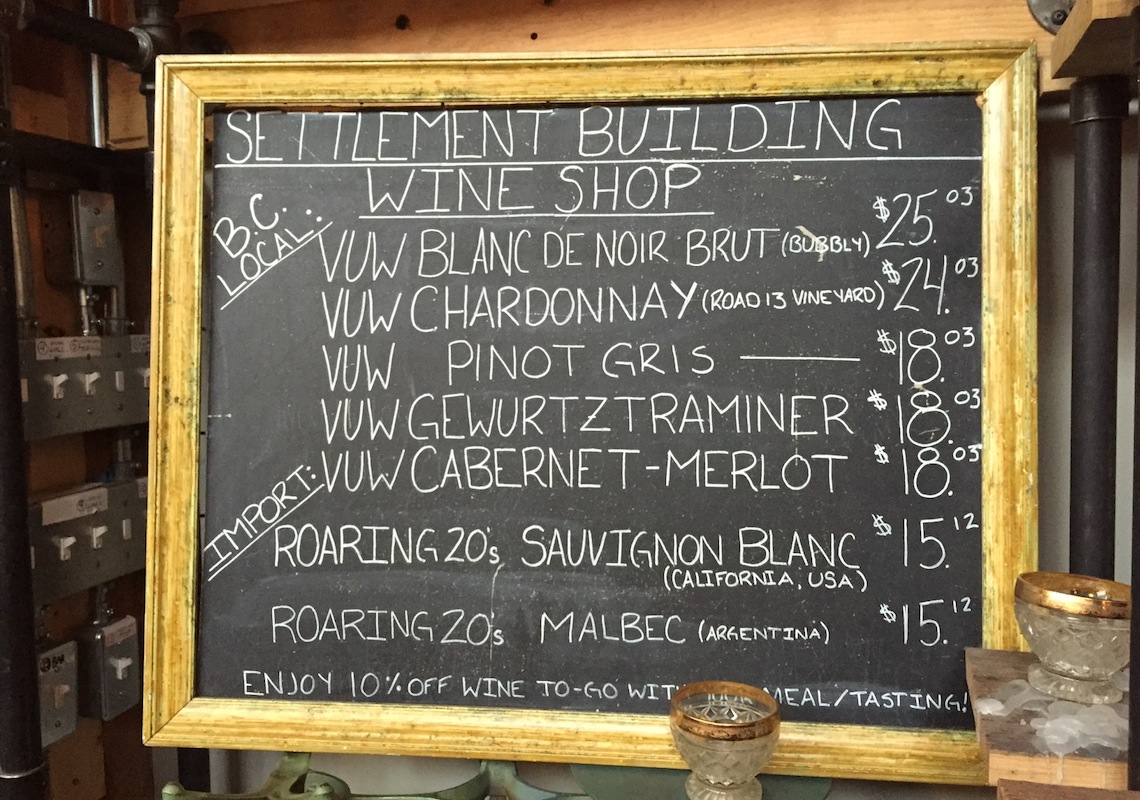 SETTLEMENT BUILDING
WINE SHOP
B.C.
LOCAL:
VUW BLANC DE NOIR BRUT (BUBBLY) $25.03
VUW CHARDONNAY (ROAD 13 VINEYARD) $24.03
VUW PINOT GRIS — $18.03
VUW GEWURTZTRAMINER $18.03
VUW CABERNET-MERLOT $18.03
IMPORT:
ROARING 20's SAUVIGNON BLANC $15.12
(CALIFORNIA, USA)
ROARING 20's MALBEC (ARGENTINA) $15.12
ENJOY 10% OFF WINE TO-GO WITH MEAL/TASTING!